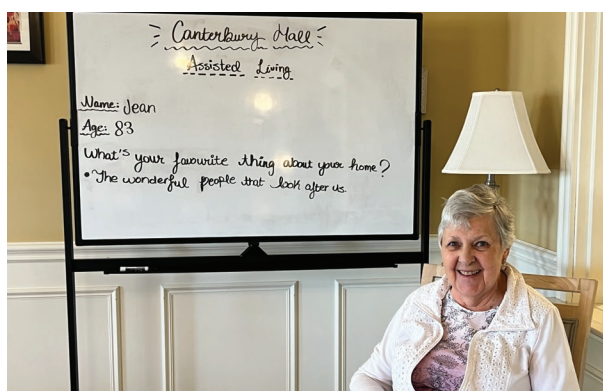 Canterbury Hall
Assisted Living
Name: Jean
Age: 83
What's your favourite thing about your home?
• The wonderful people that look after us.